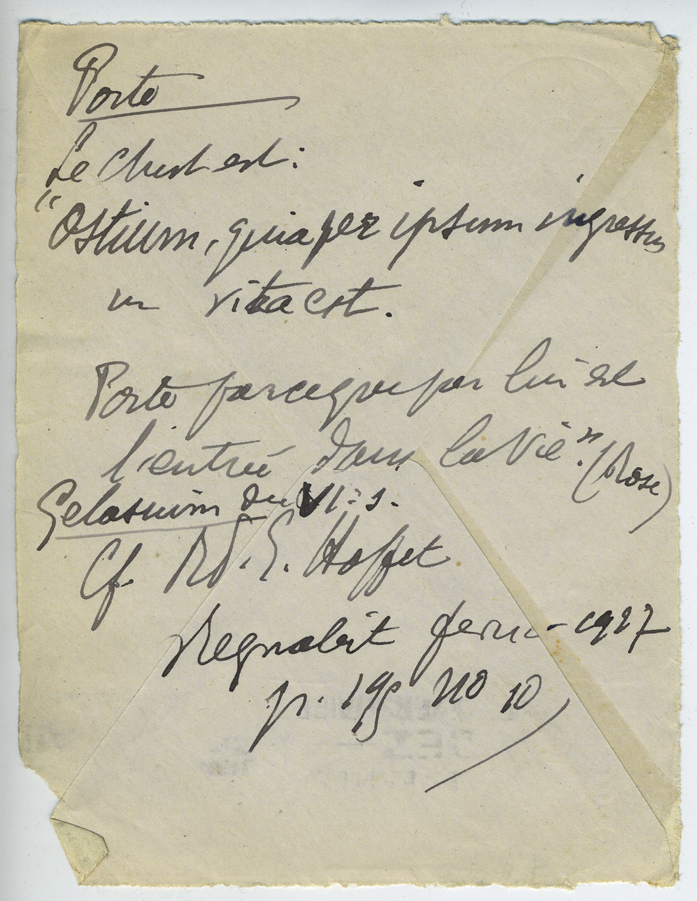 Porte
Le Christ est :
"Ostium, quia per ipsum ingressus
in vita est.
Porte parceque par lui est
l'entrée dans la Vie". (Rose)
Gelasium du VI e s.
Cf. Rd. E. Hoffet
Regnabit févr - 1927
p. 195 no 10